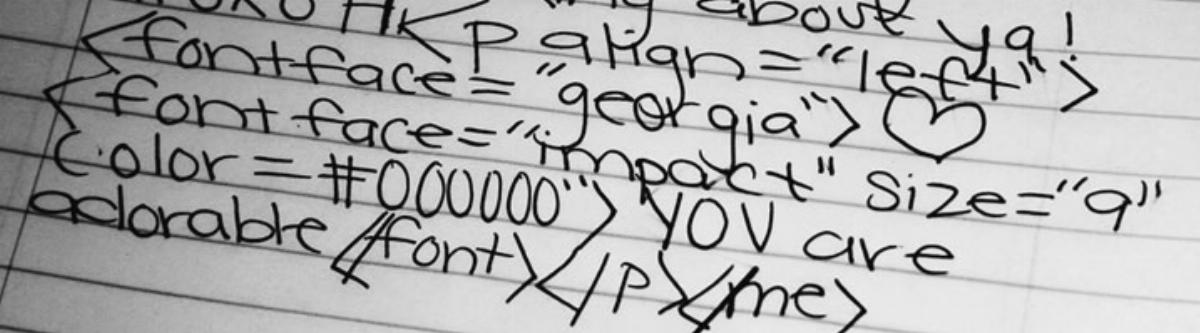 about ya!
<p align="left">
<font face="georgia">♡
<font face="impact" size="9"
color=#000000">YOU are
adorable</font></p></me>